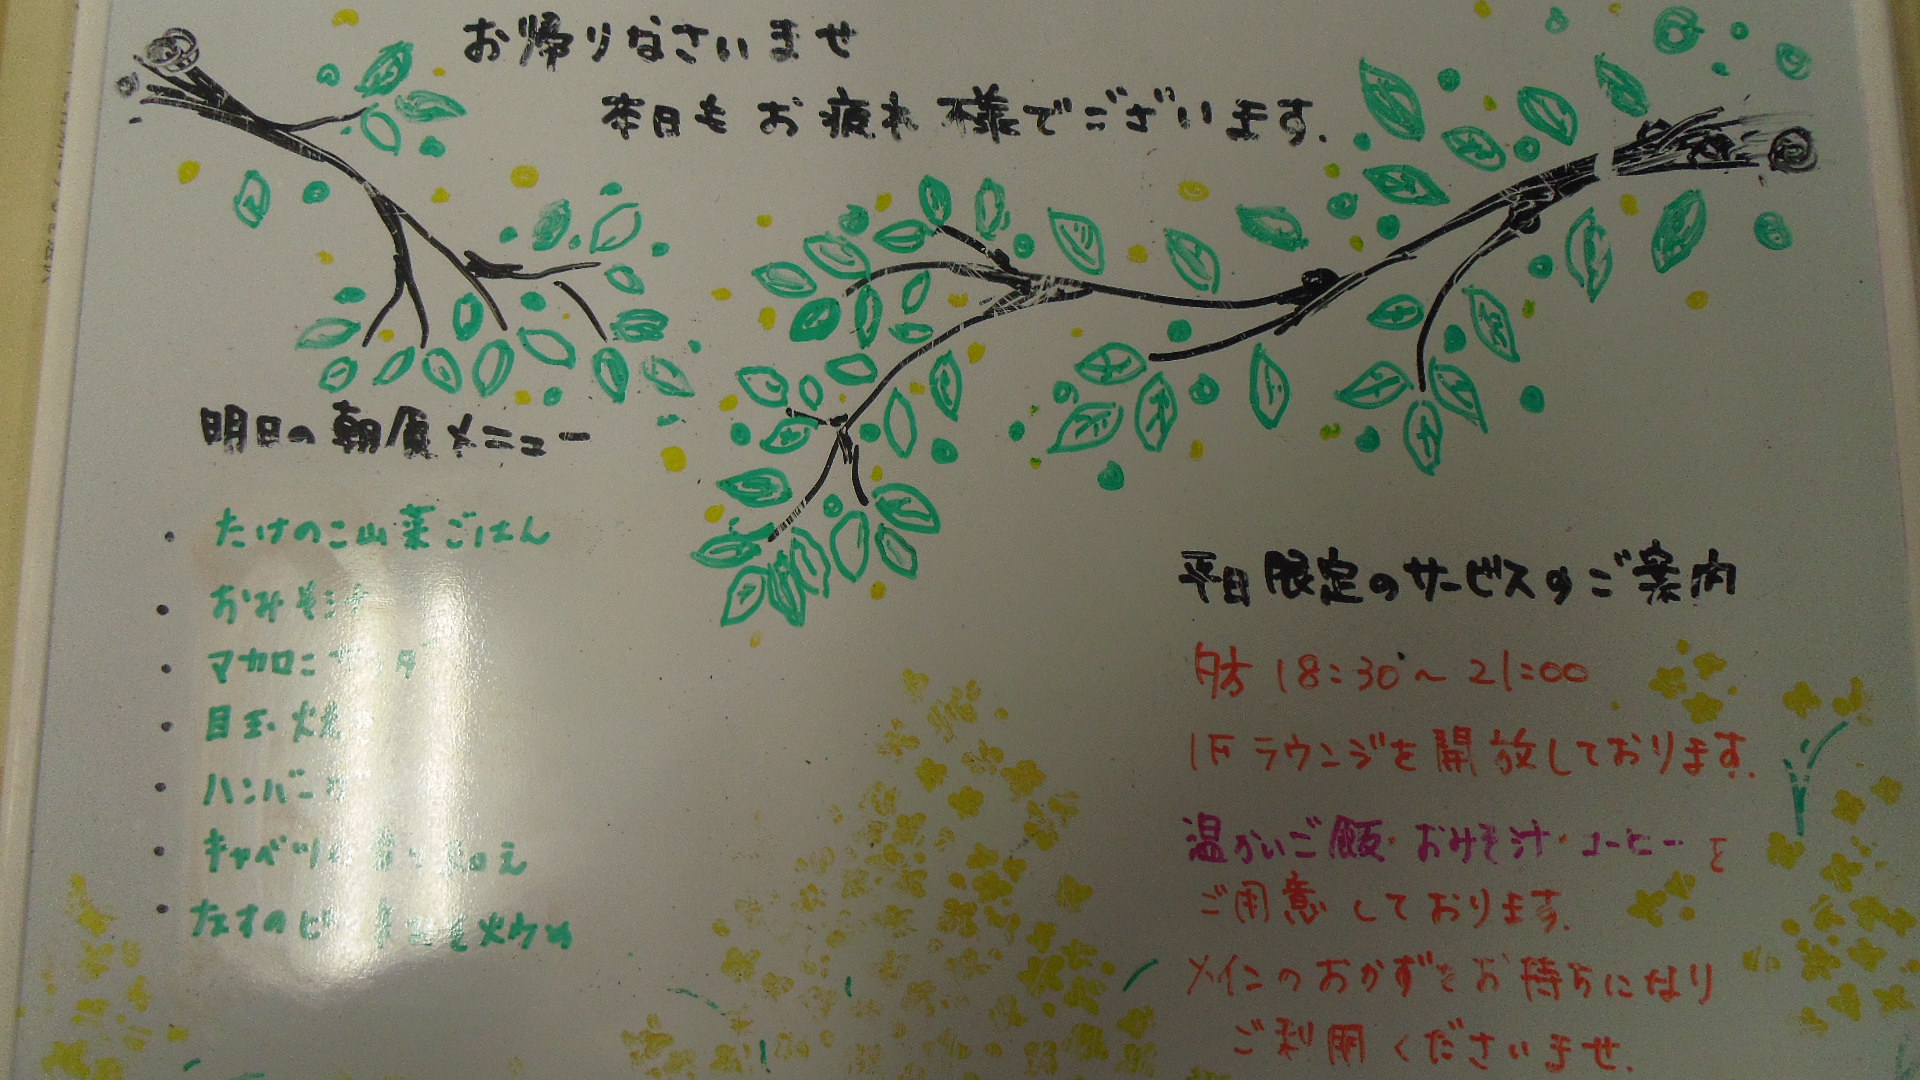 お帰りなさいませ
本日もお疲れ様でございます.
明日の朝食メニュー
・たけのこ山菜ごはん
・おみそ汁
・マカロニサラダ
・目玉焼
・ハンバーグ
・キャベツ
・なすの
平日限定のサービスのご案内
夕方 18:30~21:00
1Fラウンジを開放しております.
温かいご飯・おみそ汁・コーヒーを
ご用意しております.
メインのおかずをお持ちになり
ご利用くださいませ.